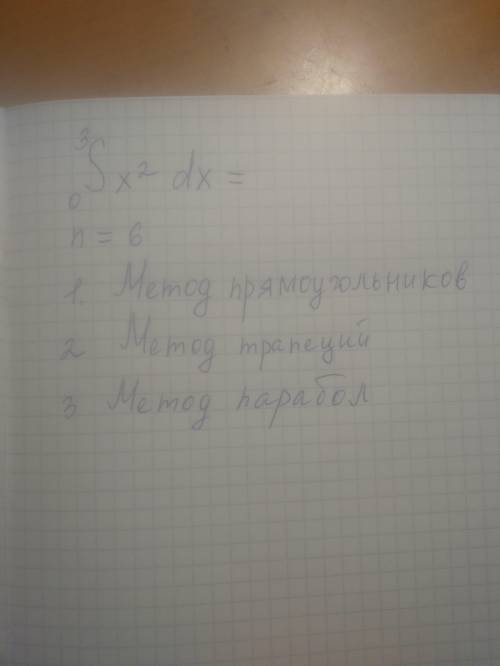 ₀³∫ x² dx =
n = 6
1. Метод прямоугольников
2 Метод трапеций
3 Метод парабол